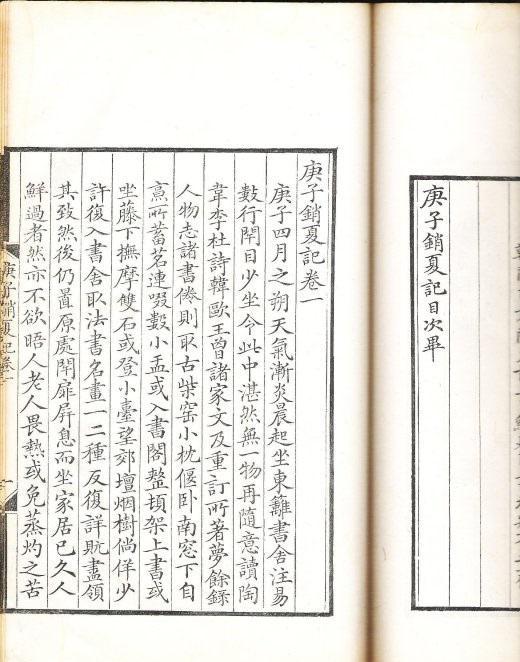 庚子銷夏記目次畢
庚子銷夏記卷一
庚子四月之朔天氣漸炎晨起坐東籬書舍注易
數行閉目少坐令此中湛然無一物再隨意讀陶
韋李杜詩韓歐王曾諸家文及重訂所著夢餘錄
人物志諸書倦則取古柴窑小枕偃卧南窓下自
烹所蓄茗連啜數小盂或入書閣整頓架上書或
坐藤下撫摩雙石或登小臺望郊壇烟樹倘佯少
許復入書舍取法書名畫一二種反復詳玩盡領
其致然後仍置原處閉扉屏息而坐家居已久人
鮮過者然亦不欲晤人老人畏熱或免蒸灼之苦
庚子銷夏記卷一
一